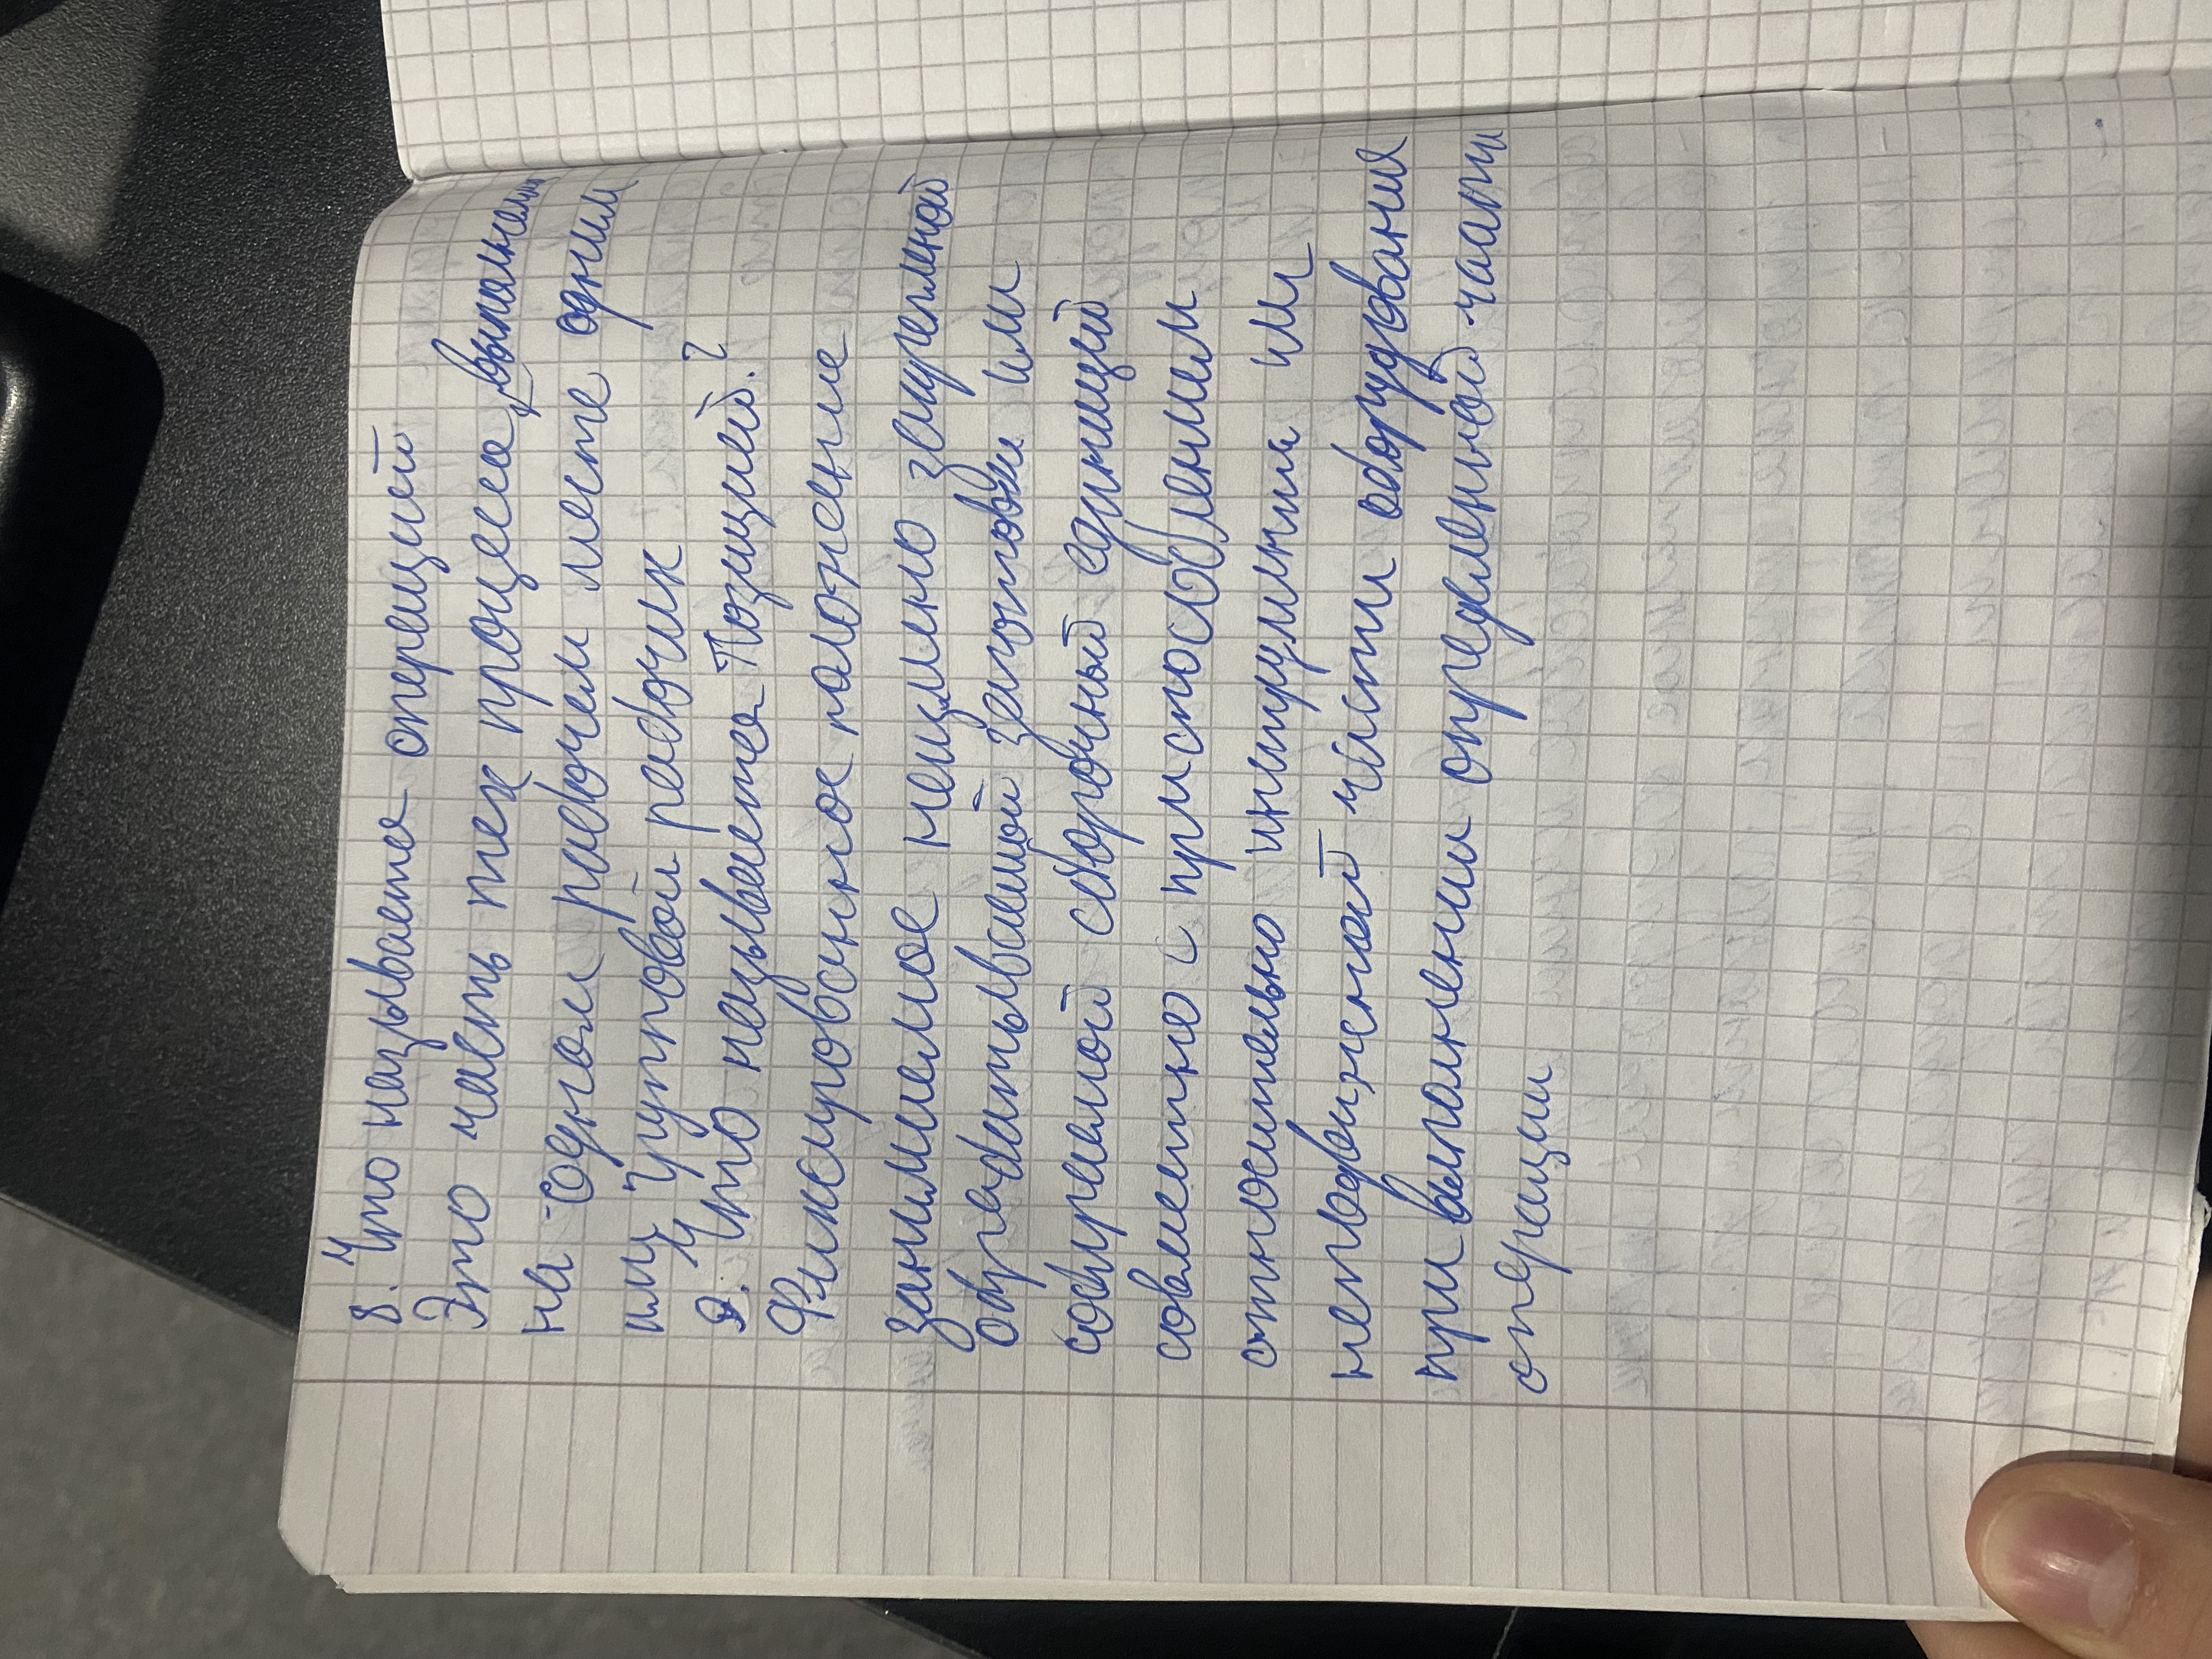 8. Что называется операцией
Это часть тех процесса, выполнены
на одном рабочем месте одним
или групповой рабочих
9. Что называется Позицией.?
Фиксированное положение
занимаемое неизменно закрепленной
обрабатываемой заготовки или
собираемой сборочный единицей
совместно с приспособлением
относительно инструмента или
неподвижной части оборудования
при выполнении определенной части
операции